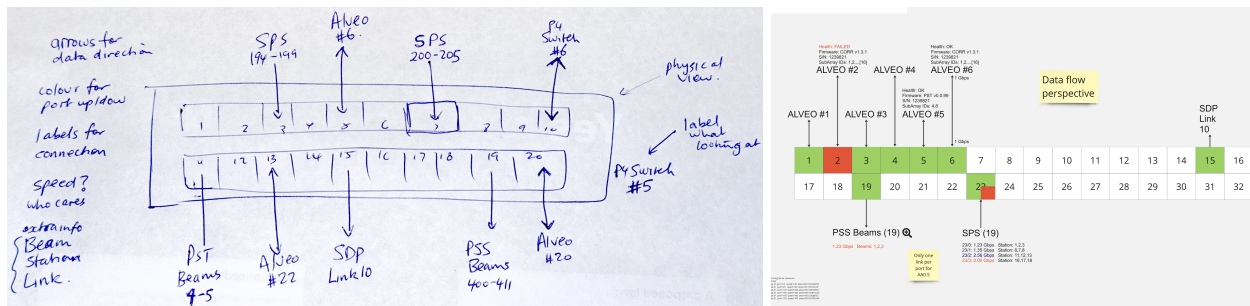 arrows for
data direction
colour for
port up/down
labels for
connection
speed?
who cares
extra info
Beam
Station
Link.
SPS
194-199
Alveo
#6.
SPS
200-205
P4
Switch
#6
physical
view.
label
what
looking at
P4 Switch
#5
1 2 3 4 5 6 7 8 9 10
11 12 13 14 15 16 17 18 19 20
PST
Beams
4-5
Alveo
#22
SDP
Link 10
PSS
Beams
400-411
Alveo
#20
Health: FAILED
Firmware: CORR v1.3.1
S/N: 1239821
SubArray IDs: 1,2...[16]
ALVEO #2
ALVEO #4
Health: OK
Firmware: CORR v1.3.1
S/N: 1239821
SubArray IDs: 1,2...[16]
ALVEO #6
1 Gbps
Health: OK
Firmware: PST v0.0.99
S/N: 1239821
SubArray IDs: 4,8
ALVEO #1
ALVEO #3
ALVEO #5
1 Gbps
Data flow
perspective
SDP
Link
10
1 2 3 4 5 6 7 8 9 10 11 12 13 14 15 16
17 18 19 20 21 22 23 24 25 26 27 28 29 30 31 32
PSS Beams (19)
1.23 Gbps Beams: 1,2,3
Only one
link per
port for
AA0.5
SPS (19)
23/0: 1.23 Gbps Station: 1,2,3
23/1: 1.35 Gbps Station: 6,7,8
23/2: 2.56 Gbps Station: 11,12,13
23/3: 0.00 Gbps Station: 16,17,18